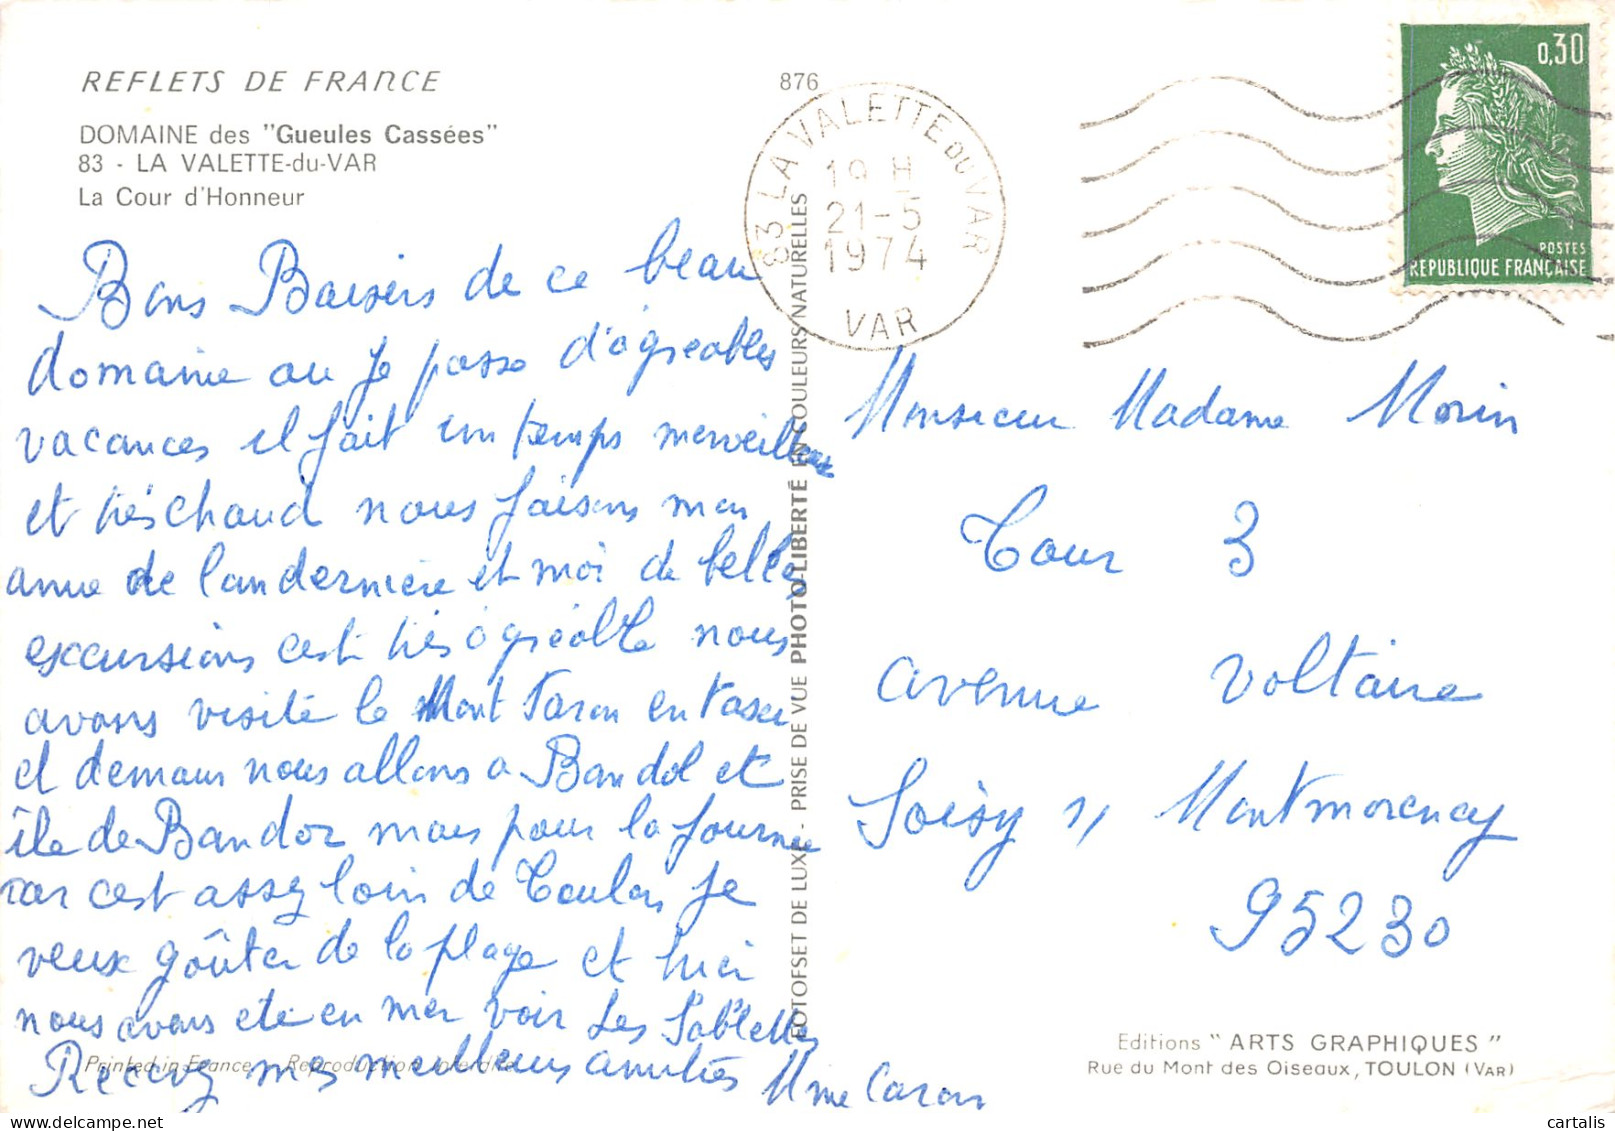 REFLETS DE FRANCE
DOMAINE des "Gueules Cassées"
83 - LA VALETTE-du-VAR
La Cour d'Honneur
876
83 LA VALETTE DU VAR
19 H
21-5
1974
VAR
0,30
POSTES
REPUBLIQUE FRANÇAISE
Bons Baisers de ce beau
domaine ou je passe d'agréables
vacances il fait un temps merveilleux
et trés chaud nous faisons mon
amie de l'an dernière et moi de belles
excursions c'est trés agréable nous
avons visité le Mont Faron en
et demain nous allons a Bandol et
île de Bandor mais pour la journée
car c'est assez loin de Toulon je
veux goûter de la plage et hier
nous avons eté en mer voir Les Sablettes
Recevez mes meilleurs amitiés Mme Caron
FOTOFSET DE LUXE - PRISE DE VUE PHOTO-LIBERTÉ EN COULEURS NATURELLES
Monsieur Madame Morin
Tour 3
avenue Voltaire
Soisy s/ Montmorency
95230
Editions "ARTS GRAPHIQUES"
Rue du Mont des Oiseaux, TOULON (VAR)
Printed in France - Reproduction interdite
cartalis